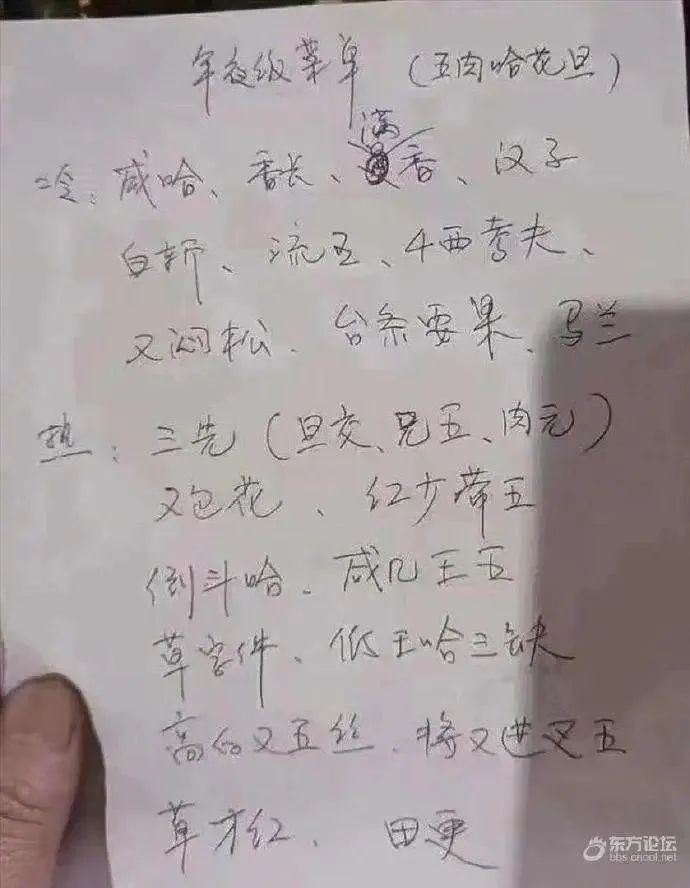 年夜级菜单 （五肉哈花旦）
冷：咸哈、香长、满香、汉子
白斩、流五、4西考夫、
又闷松、台条要果、马兰
热：三先（旦交、兄五、肉元）
又包花、红少带五
倒斗哈、咸几王五
草字件、低王哈三缺
高的又五丝、将又进又五
草才红、田更
东方论坛
bbs.cnool.net